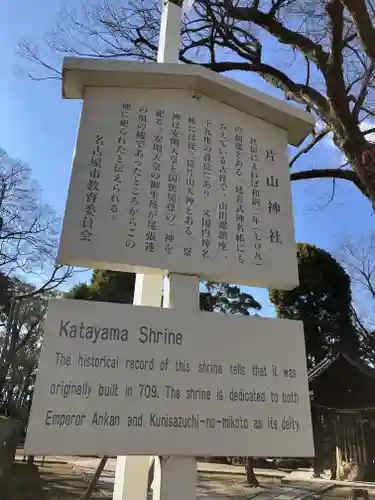 片山神社
社伝に人れば和銅二年(七〇九)
の創建とある。延喜式神名帳にも
みえる古社で、山田郡鎮座、
十九座の首位にあり、又国内神名
帳には従三位片山天神とある。祭
神は安閑天皇と国狭槌尊の二神を
祀る。安閑天皇の御生母が尾張連
の草の娘であったところからこの
地に祀られたと伝えられる。
名古屋市教育委員会
Katayama Shrine
The historical record of this shrine tells that it was
originally built in 709. The shrine is dedicated to both
Emperor Ankan and Kunisazuchi-no-mikoto as its deity.